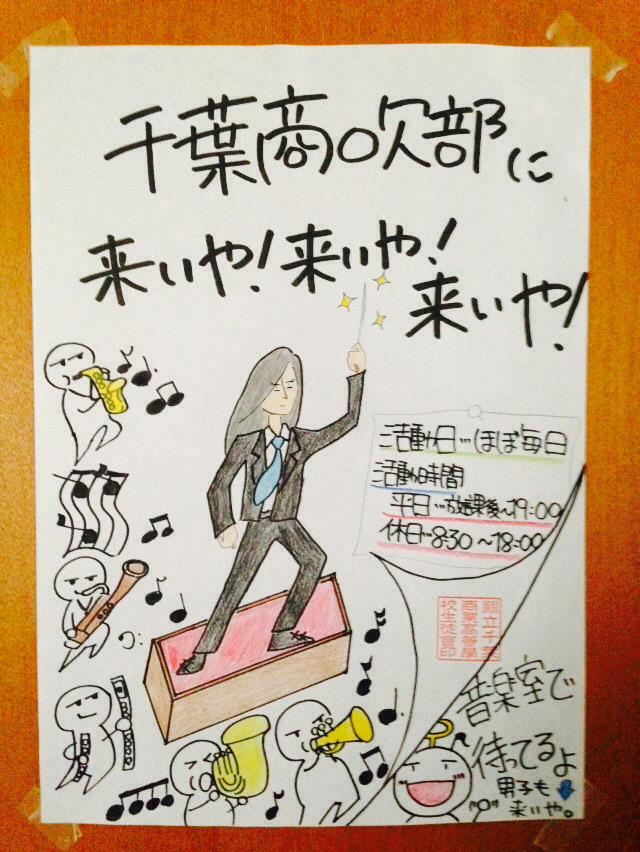 千葉商吹部に
来いや!来いや!
来いや!
活動日…ほぼ毎日
活動時間
平日…放課後〜19:00
休日…8:30〜18:00
縣立千葉
商業高等學
校生徒會印
音楽室で
待ってるよ
男子も
来いや。